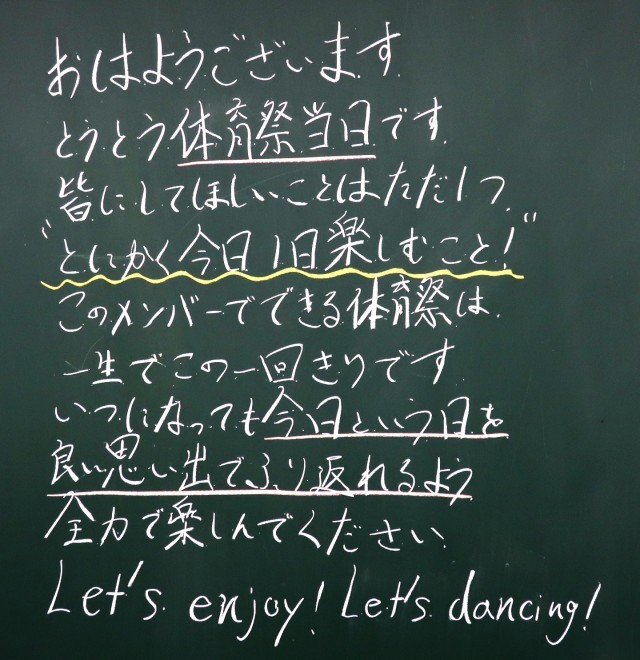 おはようございます
とうとう体育祭当日です
皆にしてほしいことはただ1つ
"とにかく今日1日楽しむこと!"
このメンバーでできる体育祭は
一生でこの一回きりです
いつになっても今日という日を
良い思い出でふり返れるよう
全力で楽しんでください
Let's enjoy! Let's dancing!